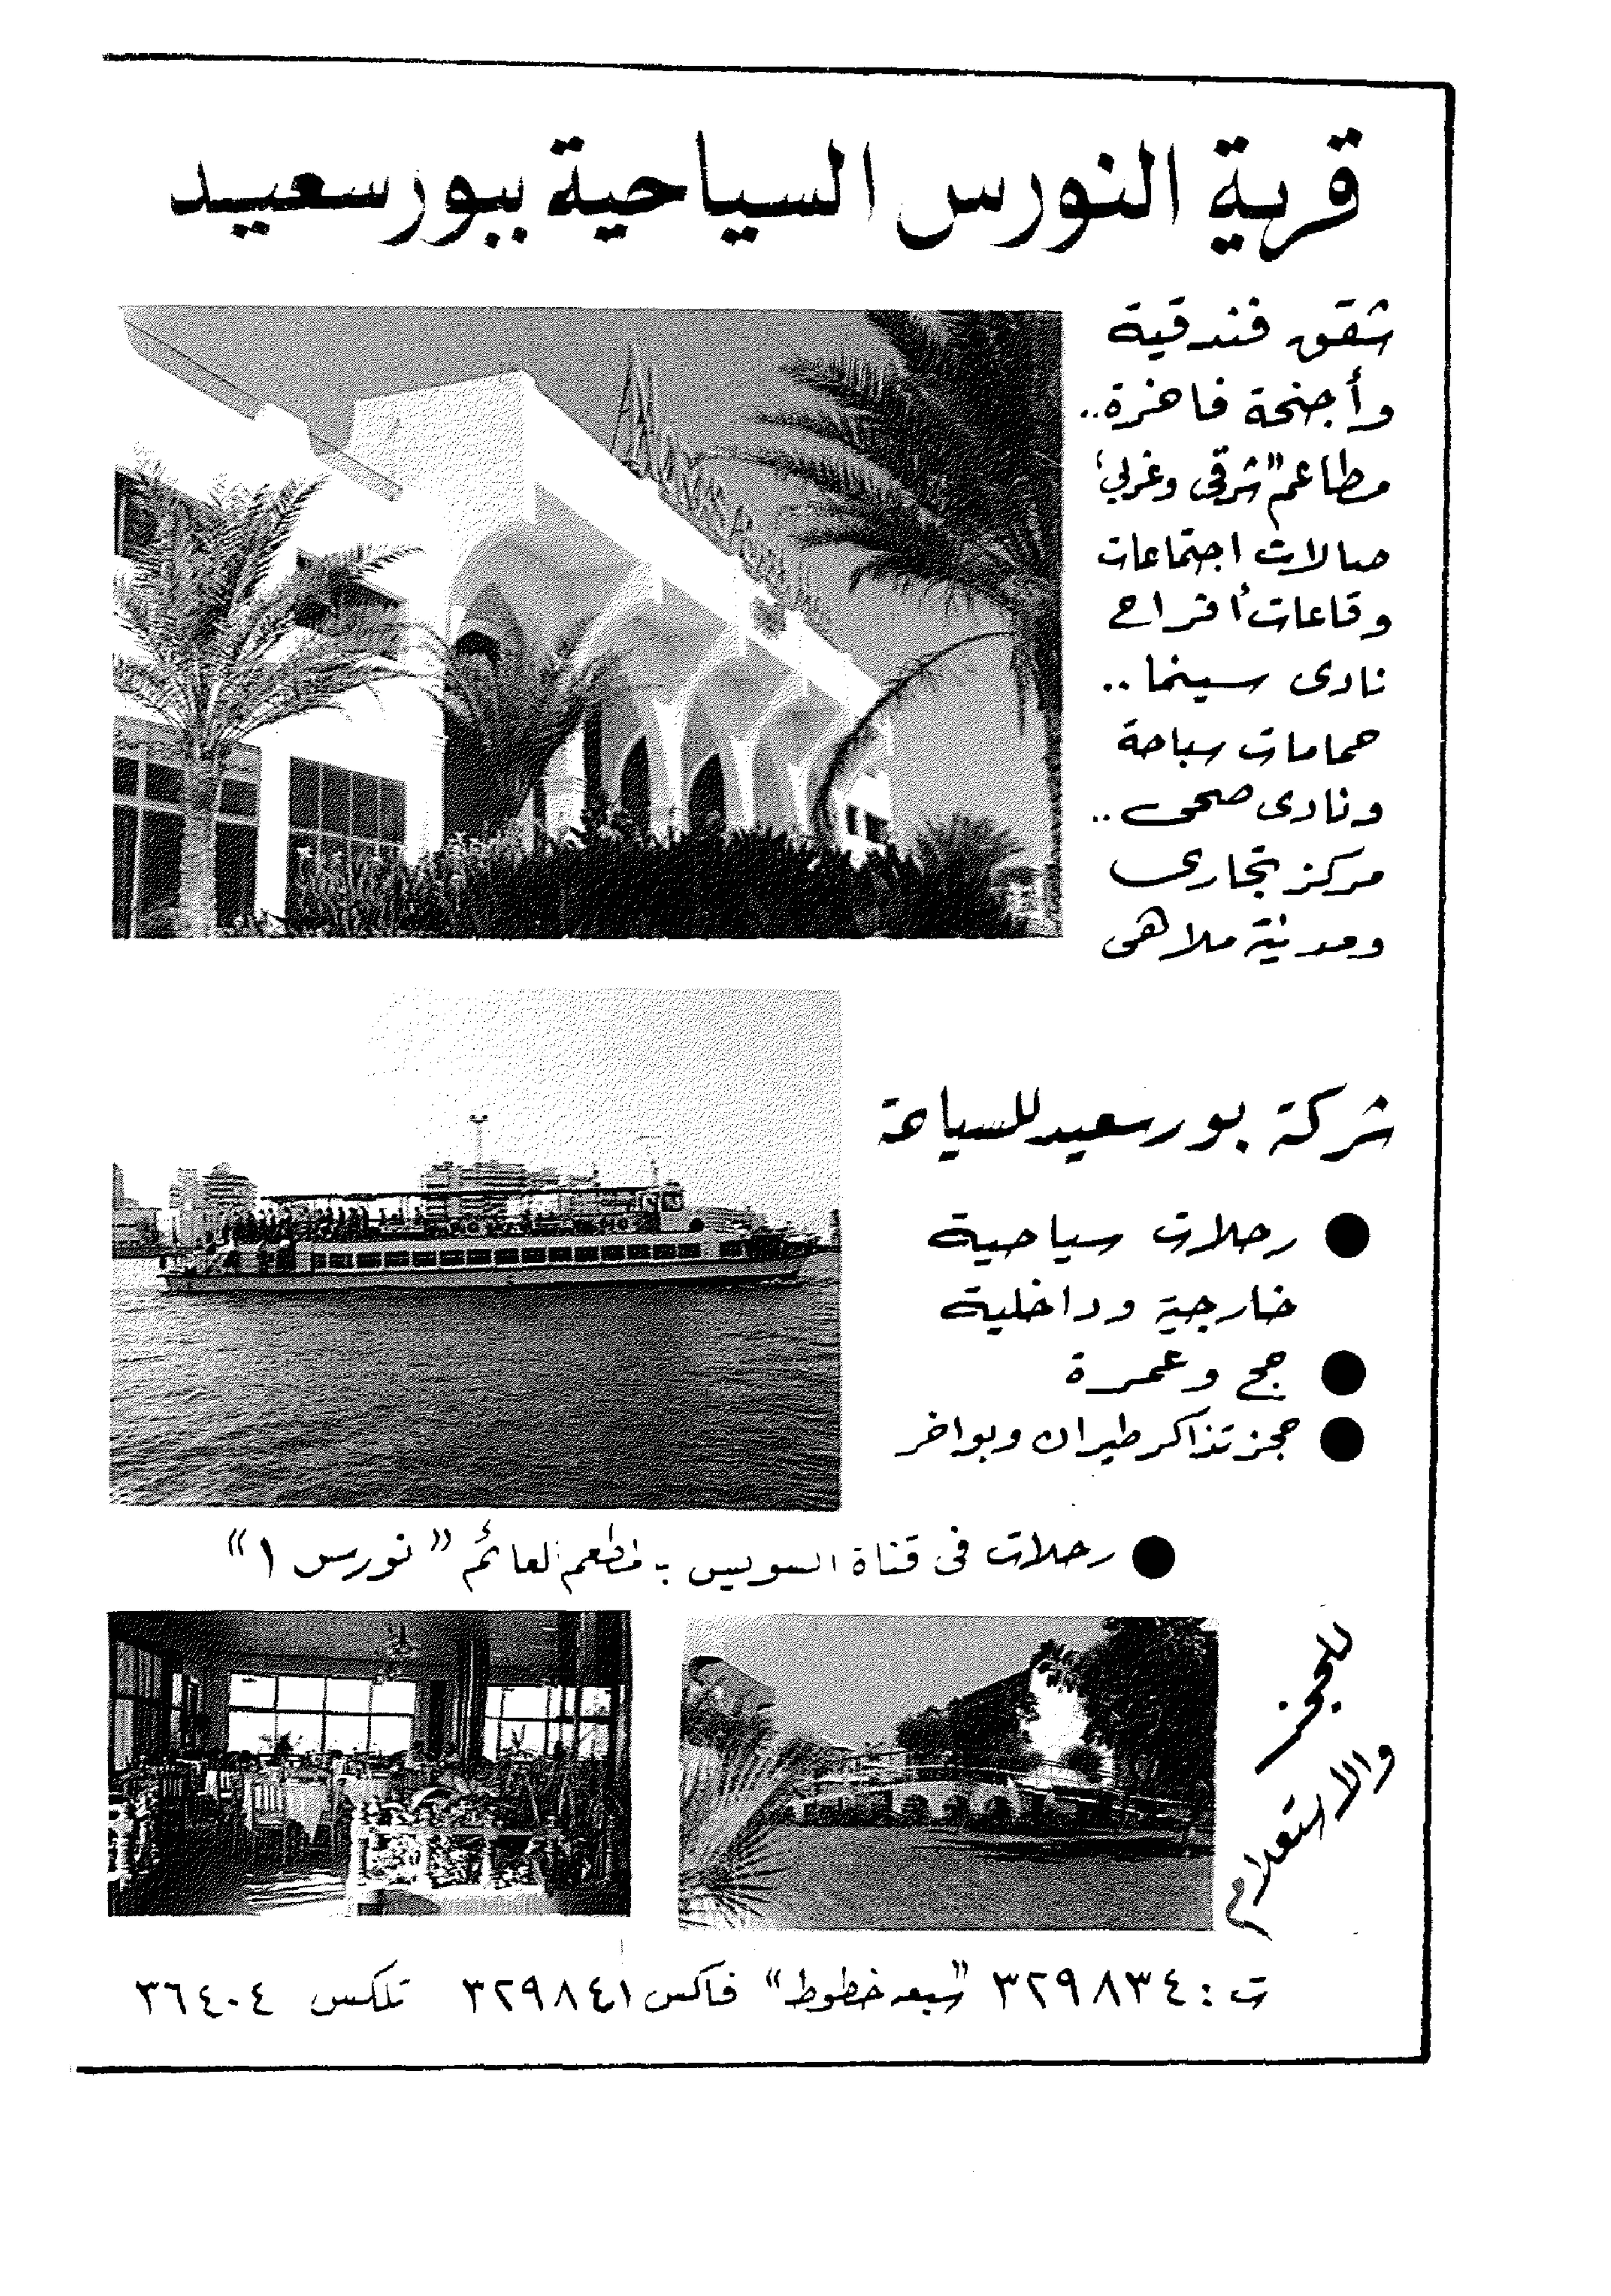 قرية النورس السياحية ببورسعيد
شقق فندقية
وأجنحة فاخرة..
مطاعم "شرقى وغربى"
صالات اجتماعات
وقاعات أفراح
نادى سينما..
حمامات سباحة
ونادى صحى..
مركز تجارى
ومدينة ملاهى
شركة بورسعيد للسياحة
● رحلات سياحية
خارجية وداخلية
● حج وعمرة
● حجز تذاكر طيران وبواخر
● رحلات فى قناة السويس بـ مطعم العائم "نورس ١"
للحجز
والاستعلام
ت: ٣٢٩٨٣٤ "سبعه خطوط" فاكس ٣٢٩٨٤١ تلكس ٣٦٤٠٤